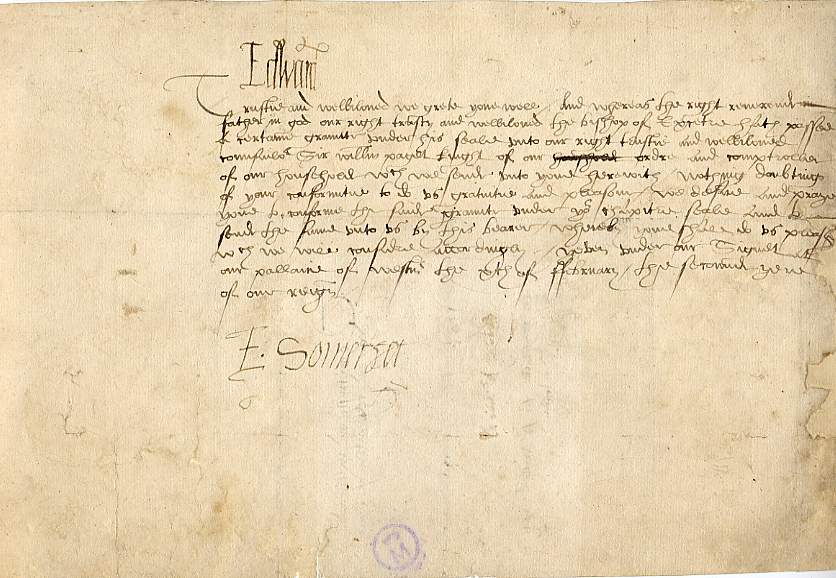 Edward
Trustie and welbiloved we grete youe well / And whereas the right reverend
father in god our right trusty and welbiloved the bishop of Excetre hath passed
a certaine graunte under his seale unto our right trustie and welbiloved
counsulo^r Sir Will^m paget knight of our houshold ordre and comptroller
of our household w^ch we send unto youe herewith / Nothing doubting
of your conformitie to do us gratuitie and pleasour / we desire and praye
youe to conforme the said graunte under yo^r chapitre seale and to
send the same unto us by this bearer / whereby youe shall do us pleasr
w^ch we will considre accordingly / Yeven under our Signet att
our pallaice of Westm^r the xth of ffebruary / the second yere
of our reign
E. Somerset